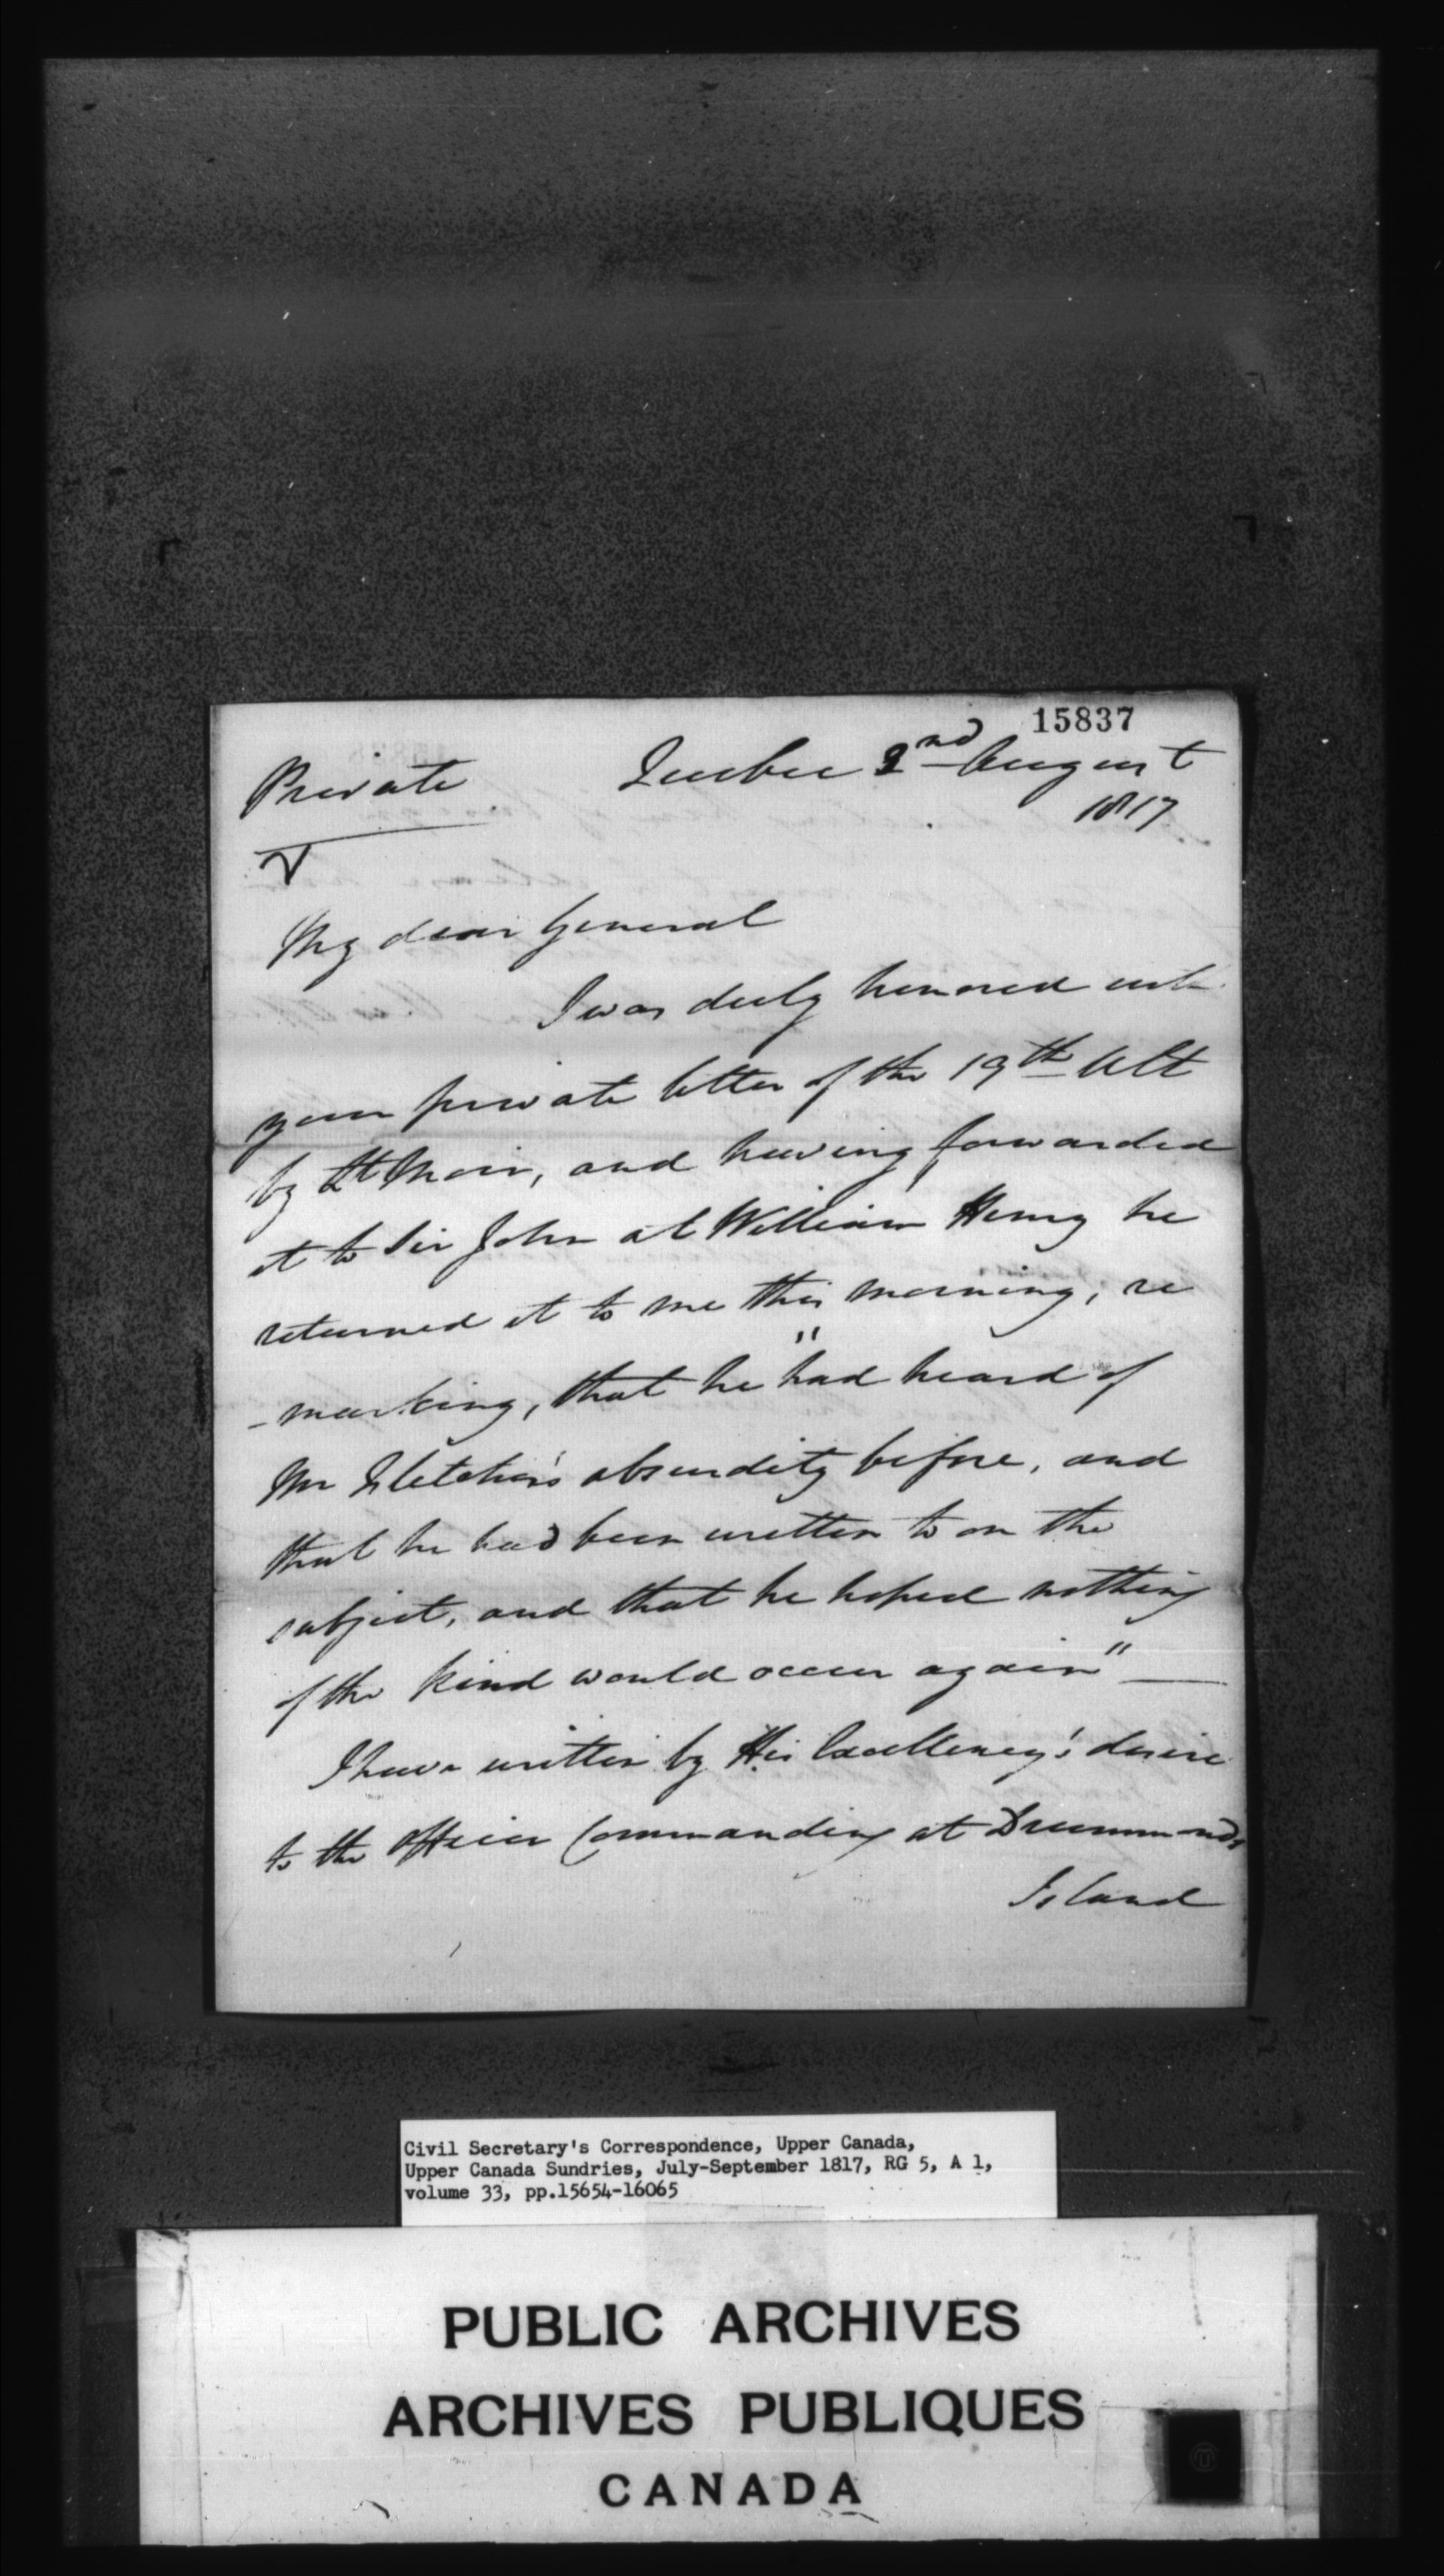 15837
Private Quebec 2nd August
1817
My dear General
I was duly honored with
your private letter of the 19th Ult
by Lt Moir, and having forwarded
it to Sir John at William Henry he
returned it to me this morning, re
-marking, that he "had heard of
Mr Fletcher's absurdity before, and
that he had been written to on the
subject, and that he hoped nothing
of the kind would occur again"
I have written by His Excellency's desire
to the Officer Commanding at Drummonds
Island
Civil Secretary's Correspondence, Upper Canada,
Upper Canada Sundries, July-September 1817, RG 5, A 1,
volume 33, pp.15654-16065
PUBLIC ARCHIVES
ARCHIVES PUBLIQUES
CANADA